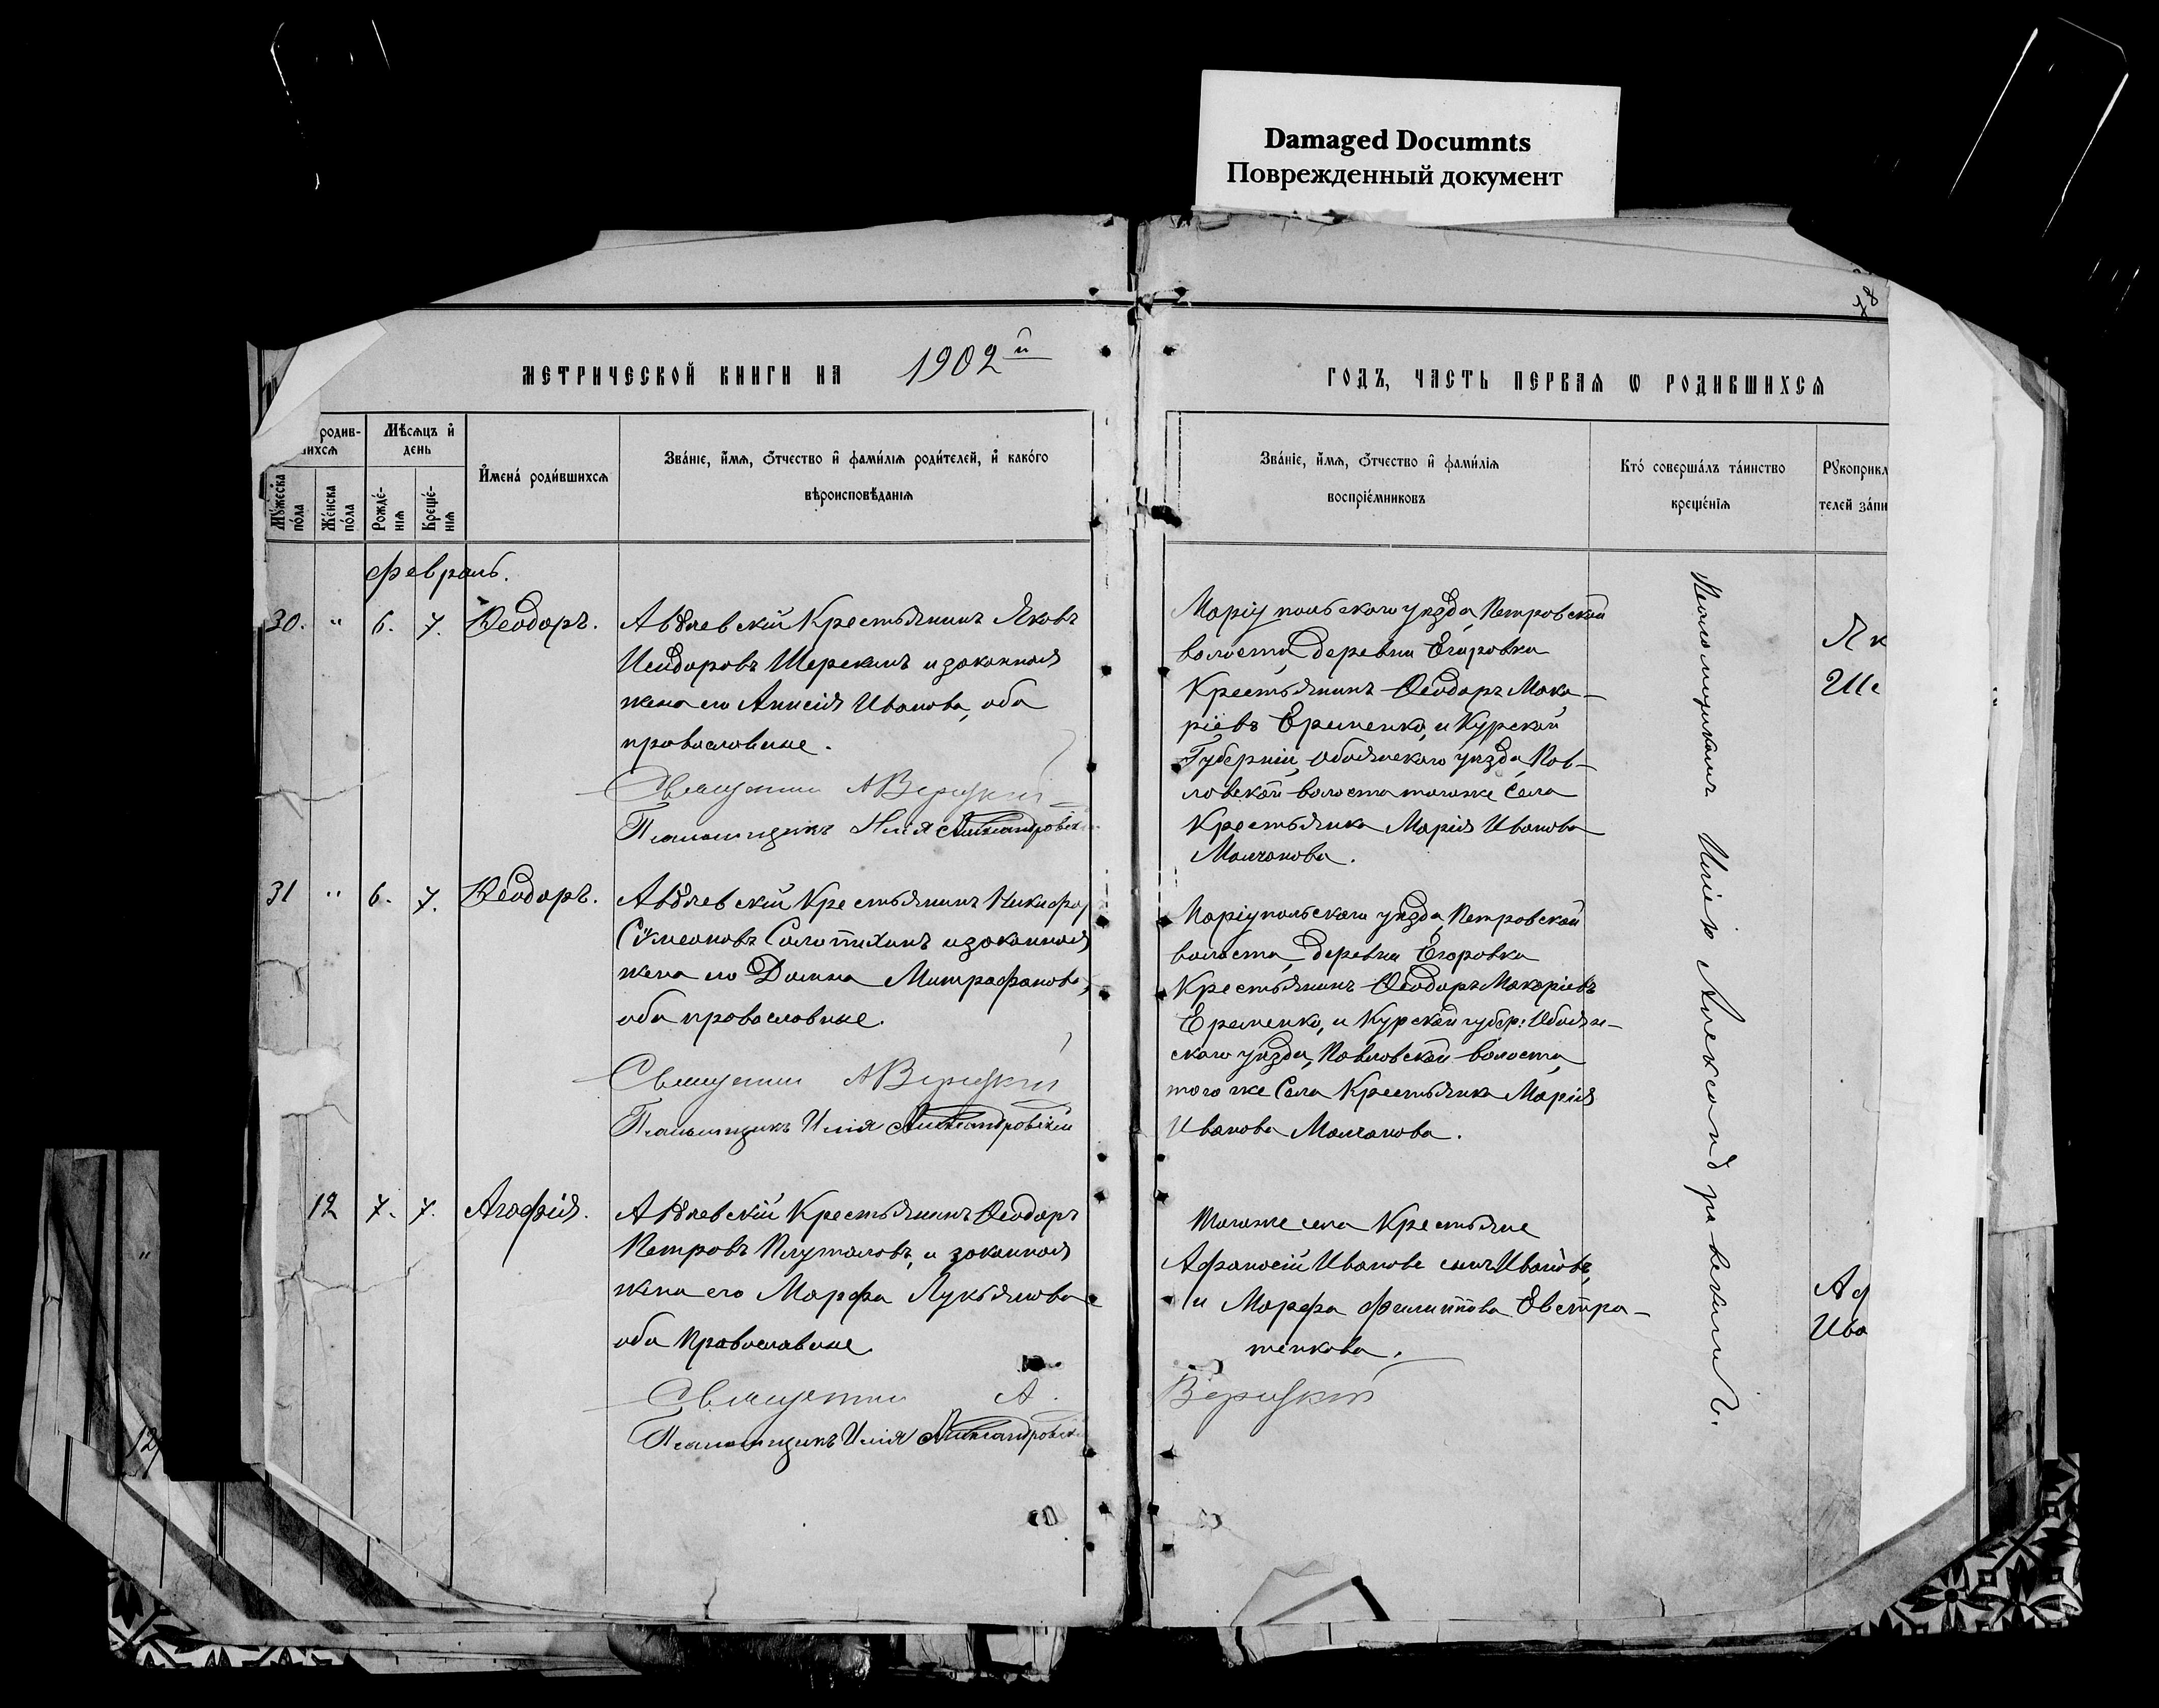 Damaged Documnts
Поврежденный документ
МЕТРИЧЕСКОЙ КНИГИ НА 1902й
ГОДЪ, ЧАСТЬ ПЕРВАЯ Ѡ РОДИВШИХСЯ
родив-
ихся
Мужеска пола
Женска пола
Мѣсяцъ и день
Рожде-нія
Креще-нія
Имена родившихся
Званіе, имя, отчество и фамилія родителей, и какого
вѣроисповѣданія
Званіе, имя, отчество и фамилія
воспріемниковъ
Кто совершалъ таинство
крещенія
Рукоприкл
телей запи
Февраль.
30. " 6. 7. Ѳеодоръ.
Авдѣевскій Крестьянинъ Яковъ
Исидоровъ Шерекинъ и законная
жена его Анисія Иванова, оба
православные.
Священник А Верицкій
Псаломщикъ Илія Александровск
Маріупольскаго уѣзда, Петровской
волости, деревни Егоровки
Крестьянинъ Ѳеодоръ Мака-
ріевъ Еременко, и Курской
Губерніи, Обоянскаго уѣзда, Пав-
ловской волости тогоже Села
Крестьянка Марія Иванова
Молчанова.
Як
Ше
31 " 6. 7. Ѳеодоръ.
Авдѣевскій Крестьянинъ Никифор
Сѵмеоновъ Солопихинъ и законная
жена его Домна Митрафанова,
оба православные.
Священник А Верицкій
Псаломщикъ Илія Александровскій
Маріупольскаго уѣзда, Петровской
волости, деревни Егоровки
Крестьянинъ Ѳеодоръ Макаріевъ
Еременко, и Курской губер: Обоян-
скаго уѣзда, Павловской волости,
того же Села Крестьянка Марія
Иванова Молчанова.
12 7. 7. Агафія.
Авдѣевскій Крестьянинъ Ѳеодоръ
Петровъ Плуталовъ, и законная
жена его Марфа Лукьянова
оба Православные
Священник А.
Верицкій
Псаломщикъ Илія Александровск
Тогоже села Крестьяне
Афанасій Иванове сынъ Ивановъ,
и Марфа Филиппова Евстра-
тенкова.
Аф
Ива
Псаломщикомъ Иліею Александровскимъ.
"
12